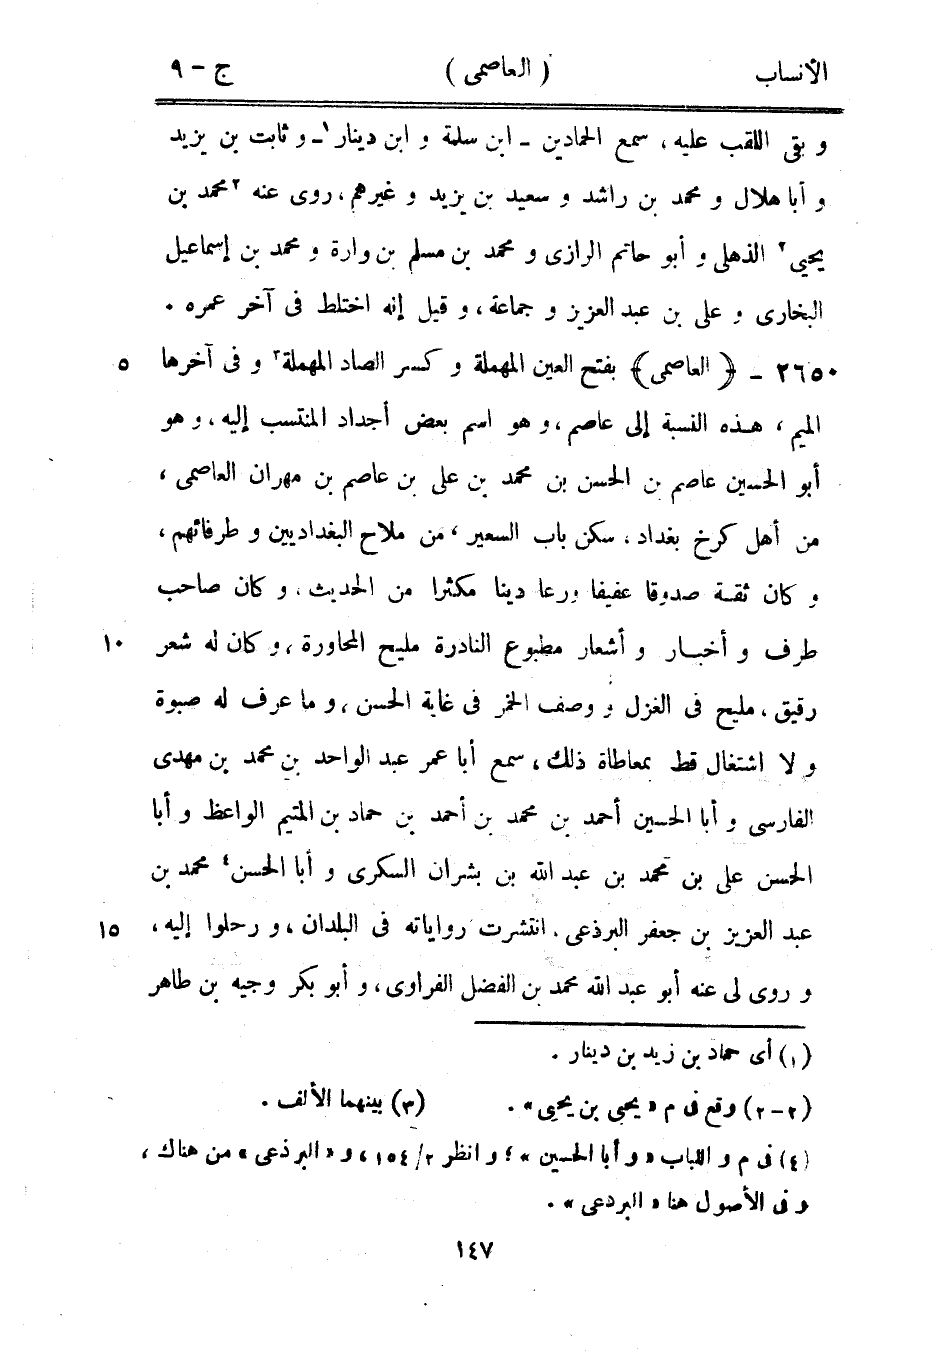 الأنساب ( العاصمى ) ج - ٩
و بقى اللقب عليه ، سمع الحمادين - ابن سلمة و ابن دينار١- و ثابت بن يزيد
و أبا هلال و محمد بن راشد و سعيد بن يزيد و غيرهم ، روى عنه ٢محمد بن
يحيى٢ الذهلى و أبو حاتم الرازى و محمد بن مسلم بن وارة و محمد بن إسماعيل
البخارى و على بن عبد العزيز و جماعة ، و قيل إنه اختلط فى آخر عمره ٠
٢٦٥٠ - ﴿ العاصمى ﴾ بفتح العين المهملة و كسر الصاد المهملة٣ و فى آخرها ٥
الميم ، هـذه النسبة إلى عاصم ، و هو اسم بعض أجداد المنتسب إليه ، و هو
أبو الحسين عاصم بن الحسن بن محمد بن على بن عاصم بن مهران العاصمى ،
من أهل كرخ بغداد ، سكن باب السعير ، من ملاح البغداديين و ظرفائهم ،
و كان ثقـة صدوقا عفيفا ورعا دينا مكثرا من الحديث ، و كان صاحب
طرف و أخبـار و أشعار مطبوع النادرة مليح المحاورة ، و كان له شعر ١٠
رقيق ، مليح فى الغزل و وصف الخمر فى غاية الحسن ، و ما عرف له صبوة
و لا اشتغال قط بمعاطاة ذلك ، سمع أبا عمر عبد الواحد بن محمد بن مهدى
الفارسى و أبا الحسين أحمد بن محمد بن أحمد بن حماد بن المتيم الواعظ و أبا
الحسن على بن محمد بن عبد الله بن بشران السكرى و أبا الحسن٤ محمد بن
عبد العزيز بن جعفر البرذعى . انتشرت رواياته فى البلدان ، و رحلوا إليه ، ١٥
و روى لى عنه أبو عبد الله محمد بن الفضل الفراوى ، و أبو بكر وجيه بن طاهر
(١) أى حماد بن زيد بن دينار .
(٢-٢) وقع فى م « يحيى بن يحيى » . (٣) بينهما الألف .
(٤) فى م و اللباب « و أبا الحسين » ؛ و انظر ٢/ ١٥٤ ، و « البرذعى » من هناك ،
و فى الأصول هنا « البردعى » .
١٤٧